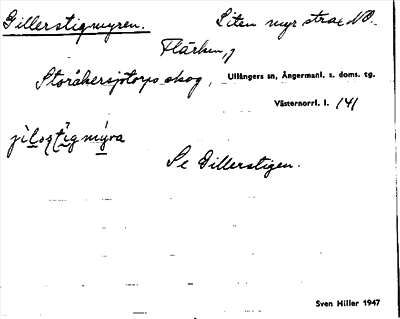 Gillerstigmyren.
Liten myr strax NO.
Flärken, i
Storåkersjötorps skog, Ullångers sn, Ångermanl. s. doms. tg.
Västernorrl. l. 141
Se Gillerstigen.
Sven Hiller 1947